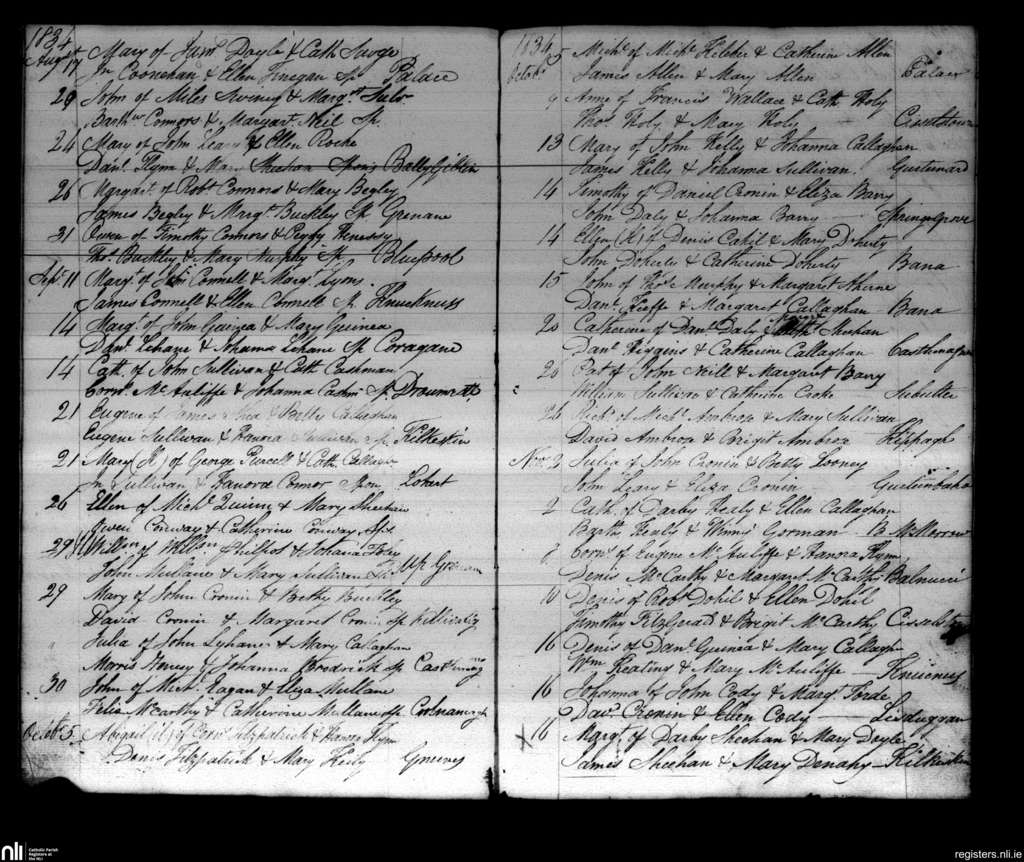 1834
Augt 17 Mary of Jams Doyle & Cath Savge
Jn Coonehan & Ellen Finegan Sp Palace
20 John of Miles Swiney & Margret
Barthw Connors & Margart Neil Sp.
24 Mary of John Leary & Ellen Roche
Danl Flym & Mary Sheehan Spons BallyGiblin
26 Margart of Robt Connors & Mary Begley
James Begley & Margt Buckley Sp Grenane
31 Owen of Timothy Connors & Peggy Henessy
Thos Buckley & Mary Murphy Sp Bluepool
Sept 11 Margt of John Connell & Margt Lyons
James Connell & Ellen Connell Sp Knuckness
14 Margt of John Guinea & Mary Guinea
Danl Lehane & Johanna Lehane Sp Coragane
14 Cath. of John Sullivan & Cath Cashman
Corns McAuliffe & Johanna Cashn Sp.
21 Eugene of James & Betty Callaghan
Eugene Sullivan & Hanora Sp. Kilkerkin
21 Mary (K) of George Purcell & Cath. Callagn
Jn Sullivan & Hanora Connor Spon Lohert
26 Ellen of Michl Quinn & Mary Sheehan
Owen Conway & Catherine Conway Sps
29 Willm of Willm Philpot & Johana Foley
John Mullane & Mary Sullivan Sp Up Greenan
29 Mary of John Cronin & Betty Buckley
David Cronin & Margaret Cronin Sp Killividig
Julia of John Lyhane & Mary Callaghan
Morris Honey & Johanna Brodrick Sp
30 John of Michl Eagan & Eliza Mullane
Felix McCarthy & Catherine Mullane Sp
Octobr 5. Abigail (il) of Corns Fitzpatrick & Hanora Flym
Denis Fitzpatrick & Mary Keily Greenes
1834
Octobr 5 Michl of Michl Keleher & Catherin Allen
James Allen & Mary Allen Palace
9 Anne of Francis Wallace & Cath Holy
Thos Holy & Mary Holy
13 Mary of John Kelly & Johanna Callaghan
James Kelly & Johanna Sullivan.
14 Timothy of Daniel Cronin & Eliza Barry
John Daly & Johanna Barry Springgrove
14 Ellen (K) of Denis Cahil & Mary Doherty
John Doherty & Catherine Doherty Bana
15 John of Thos Murphy & Margaret Aherne
Danl Keeffe & Margaret Callaghan Bana
20 Catherine of Danl Daly & Sheehan
Danl Higgins & Catherine Callaghan Castlemagner
20 Pat of John Neill & Margaret Barry
William Sullivan & Catherine Croke Subulter
26 Michl of Michl Ambrose & Mary Sullivan
David Ambrose & Briget Ambrose Kippagh
Novr 2 Julia of John Cronin & Betty Looney
John Leary & Eliza Cronin
2 Cath. of Darby Healy & Ellen Callaghan
Barth Healy & Winny Gorman B McMorrow
8 Corns of Eugene McAuliffe & Hanora Flym
Denis McCarthy & Margaret McCarthy
10 Denis of Robt Dohil & Ellen Dohil
Timothy FitzGerard & Briget McCarthy
16 Denis of Danl Guinea & Mary Callaghn
Wm Keating & Mary McAuliffe
16 Johanna of John Cody & Margt Forde
Davd Cronin & Ellen Cody
16 Margt of Darby Sheehan & Mary Doyle
James Sheehan & Mary Denahy Kilkerkin
nli
Catholic Parish
Registers at
the NLI
registers.nli.ie